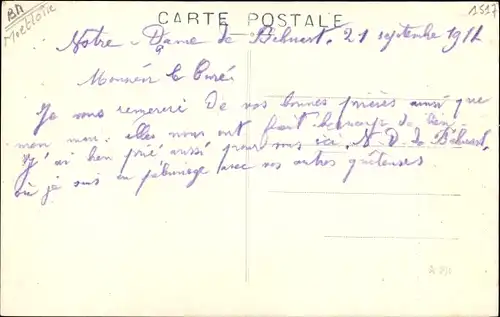 BM
Moellosie
CARTE POSTALE
1517
Notre-Dame de Béhuart. 21 septembre 1911
Monsieur le Curé,
Je vous remercie de vos bonnes prières ainsi que
mon mari. elles nous ont fait beaucoup de bien
J'ai bien prié aussi pour vous ici, N. D. de Béhuart,
où je suis en pélerinage avec vos autres quêteuses